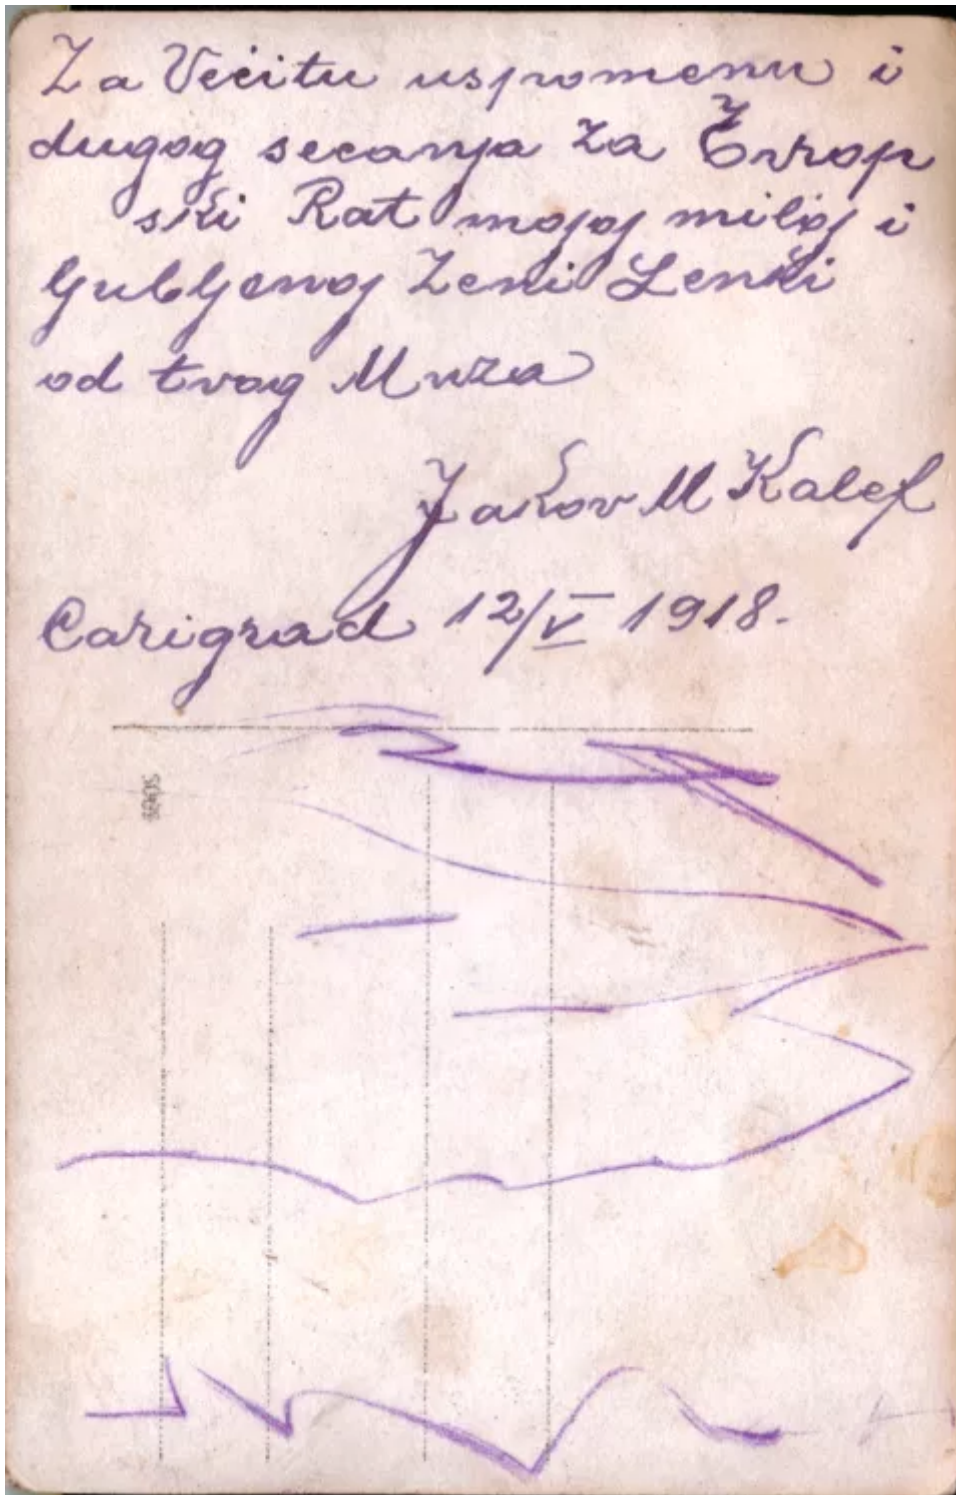 Za Većitu uspomenu i
dugog secanja za Evrop
ski Rat mojoj miloj i
ljubljenoj Zeni Lenki
od tvog Muza
Jakov M Kalef
Carigrad 12/V 1918.